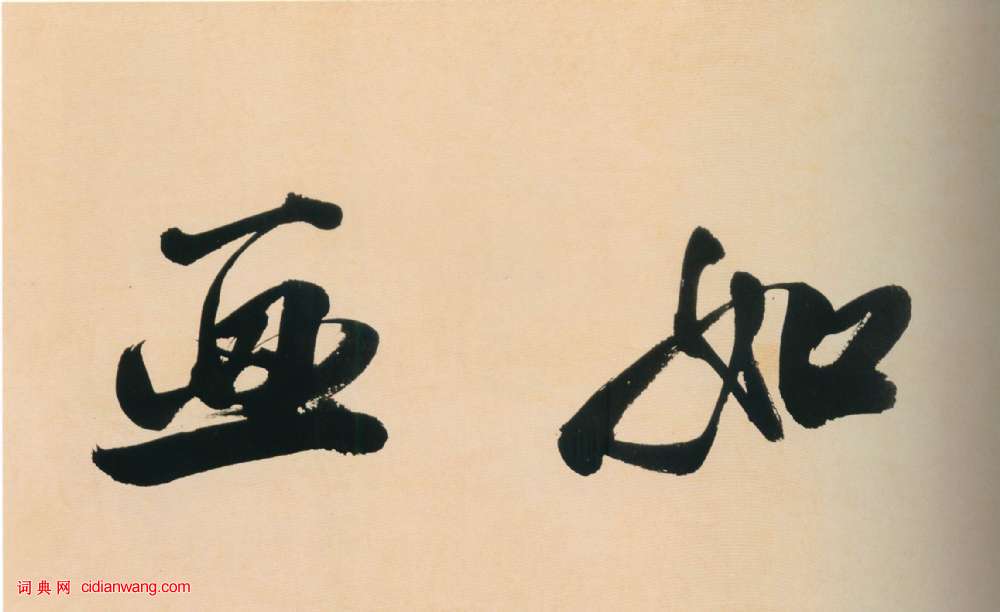 如画
词典网 cidianwang.com